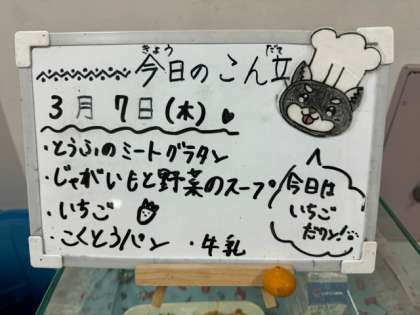 今日のこん立
きょう だて
3月7日(木)
・とうふのミートグラタン
・じゃがいもと野菜のスープ
・いちご
・こくとうパン ・牛乳
今日は
いちご
だワン!